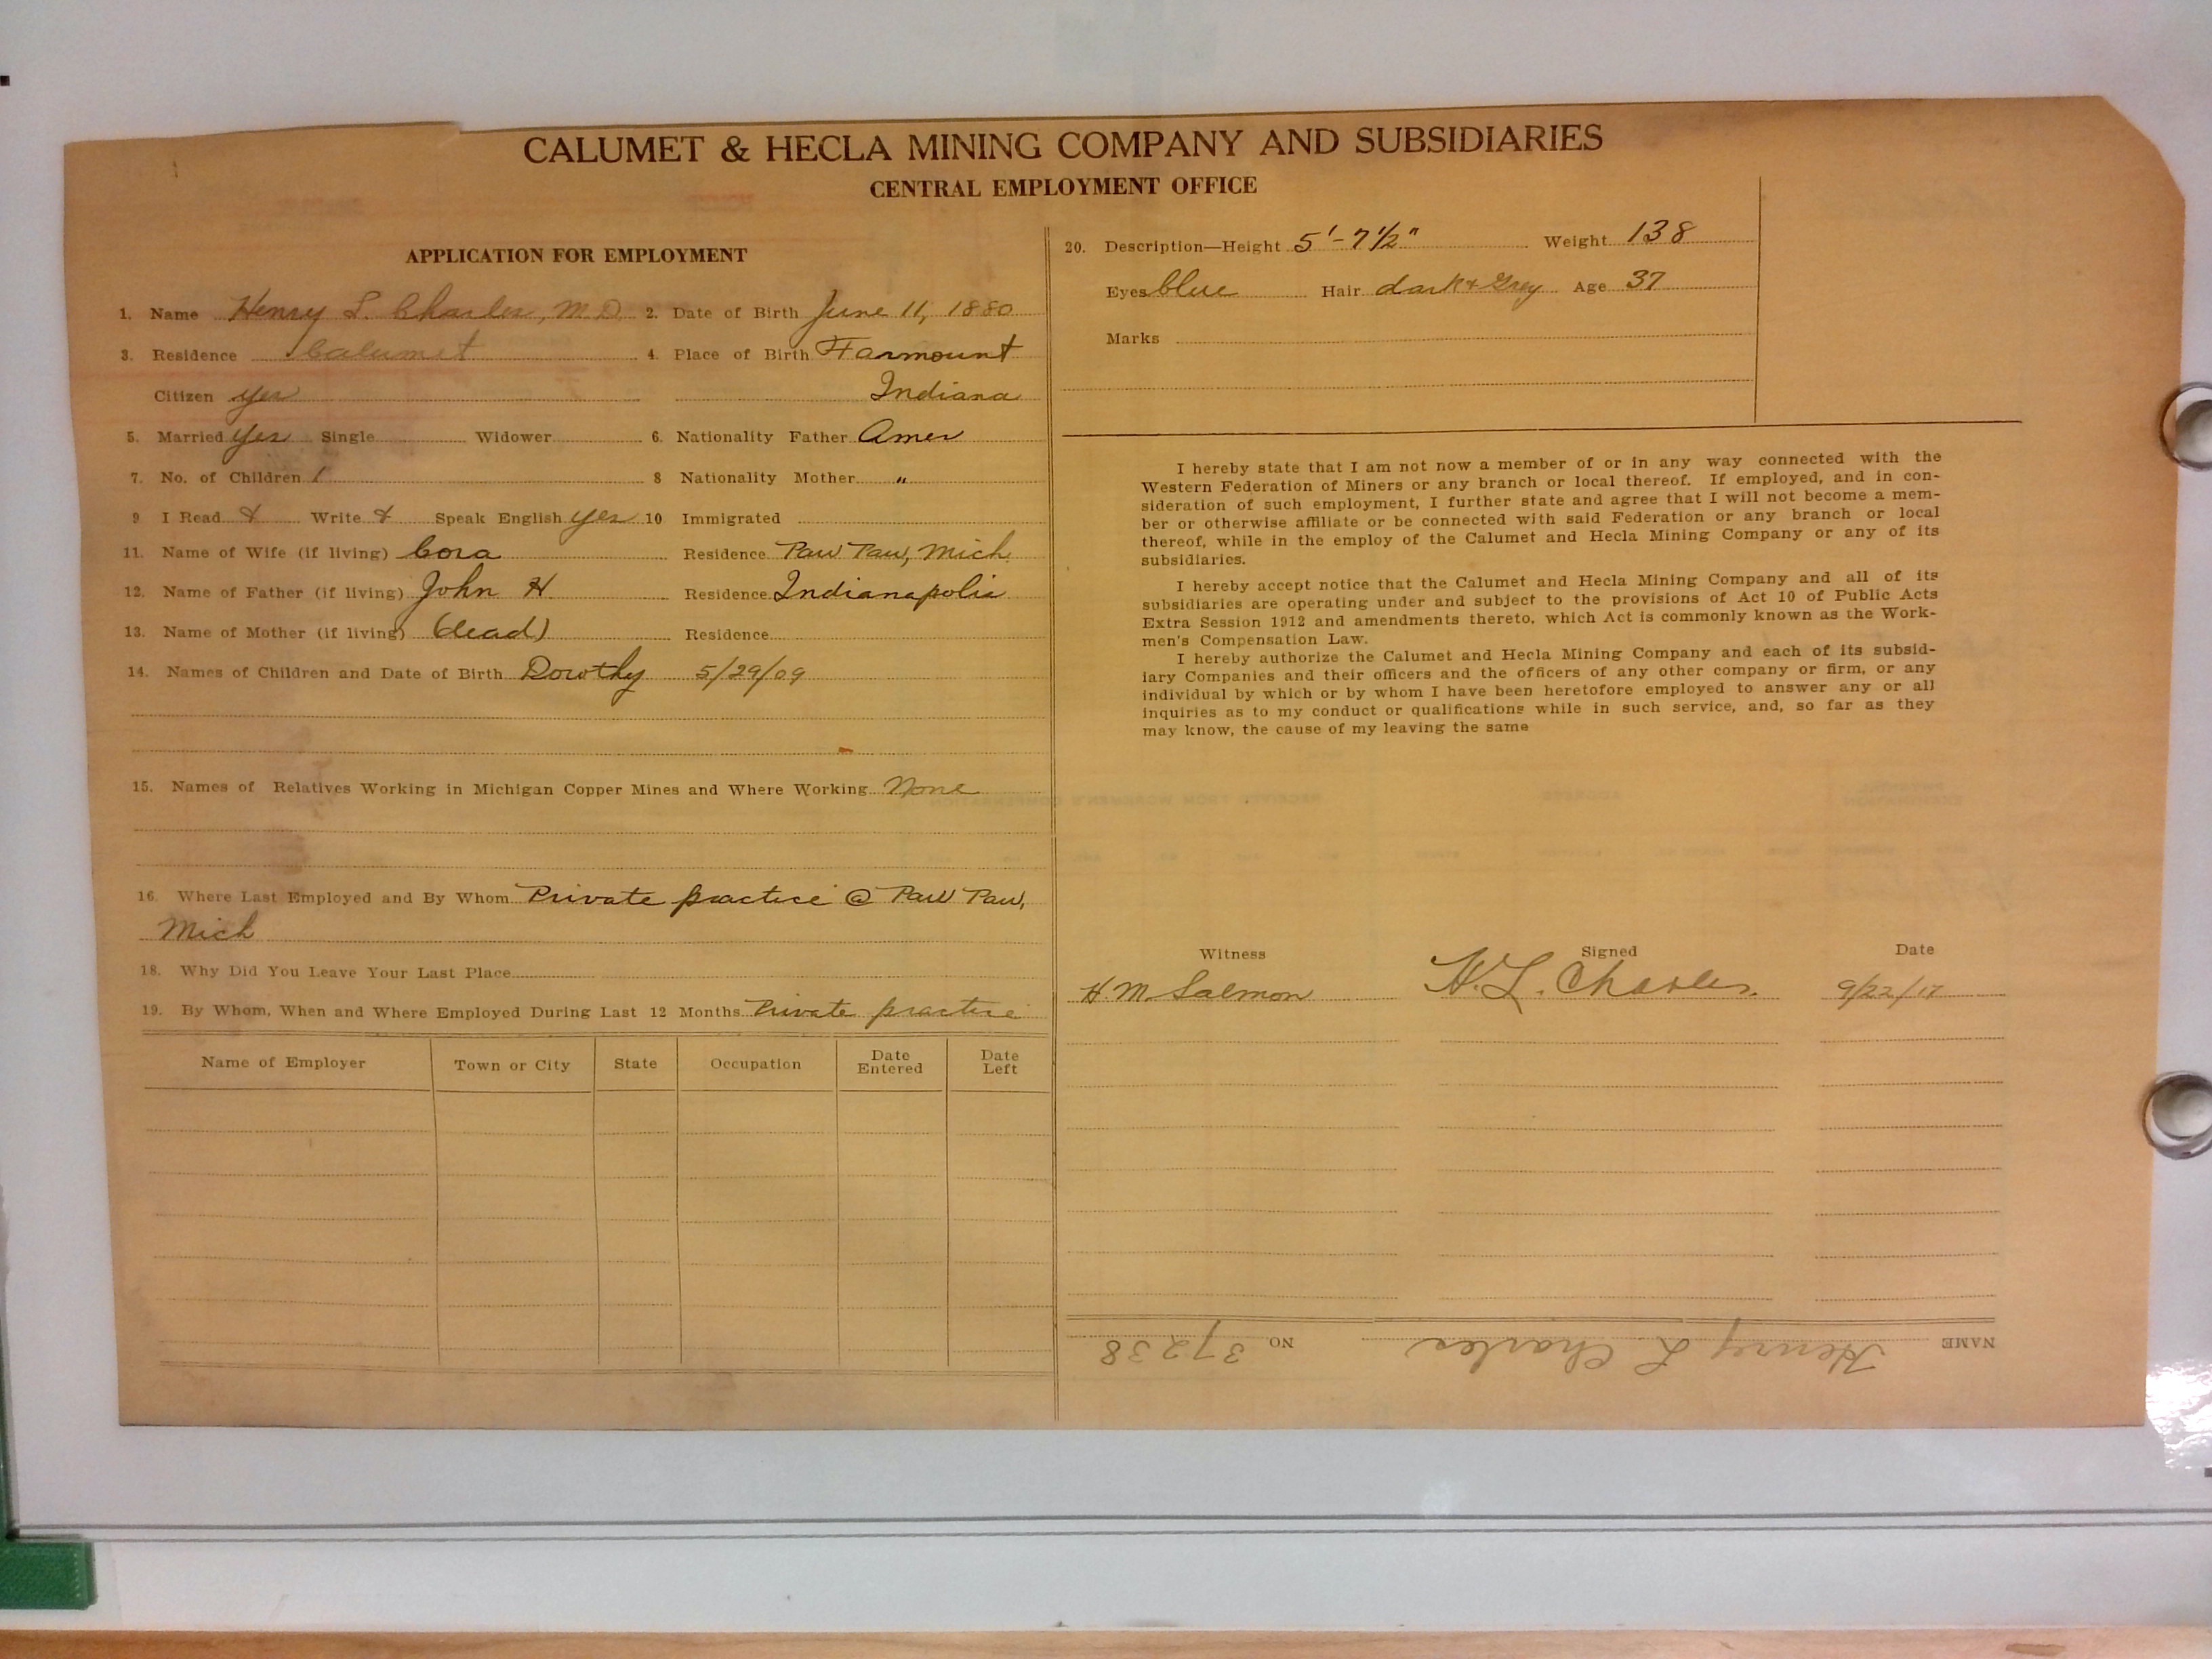 CALUMET & HECLA MINING COMPANY AND SUBSIDIARIES
CENTRAL EMPLOYMENT OFFICE
APPLICATION FOR EMPLOYMENT
1. Name Henry L. Charles, M.D. 2. Date of Birth June 11, 1880
3. Residence Calumet 4. Place of Birth Farmount
Citizen yes Indiana
5. Married yes Single Widower 6. Nationality Father Amer
7. No. of Children 1 8 Nationality Mother "
9 I Read & Write & Speak English yes 10 Immigrated
11. Name of Wife (if living) Cora Residence Paw Paw, Mich
12. Name of Father (if living) John H Residence Indianapolis
13. Name of Mother (if living) (dead) Residence
14. Names of Children and Date of Birth Dorothy 5/29/09
15. Names of Relatives Working in Michigan Copper Mines and Where Working None
16. Where Last Employed and By Whom Private practice @ Paw Paw,
Mich
18. Why Did You Leave Your Last Place
19. By Whom, When and Where Employed During Last 12 Months Private practice
Name of Employer Town or City State Occupation Date Entered Date Left
20. Description—Height 5'-7 1/2" Weight 138
Eyes blue Hair dark & Grey Age 37
Marks
I hereby state that I am not now a member of or in any way connected with the
Western Federation of Miners or any branch or local thereof. If employed, and in con-
sideration of such employment, I further state and agree that I will not become a mem-
ber or otherwise affiliate or be connected with said Federation or any branch or local
thereof, while in the employ of the Calumet and Hecla Mining Company or any of its
subsidiaries.
I hereby accept notice that the Calumet and Hecla Mining Company and all of its
subsidiaries are operating under and subject to the provisions of Act 10 of Public Acts
Extra Session 1912 and amendments thereto, which Act is commonly known as the Work-
men's Compensation Law.
I hereby authorize the Calumet and Hecla Mining Company and each of its subsid-
iary Companies and their officers and the officers of any other company or firm, or any
individual by which or by whom I have been heretofore employed to answer any or all
inquiries as to my conduct or qualifications while in such service, and, so far as they
may know, the cause of my leaving the same
Witness Signed Date
H. M. Salmon H. L. Charles 9/22/17
NAME Henry L Charles NO 37238